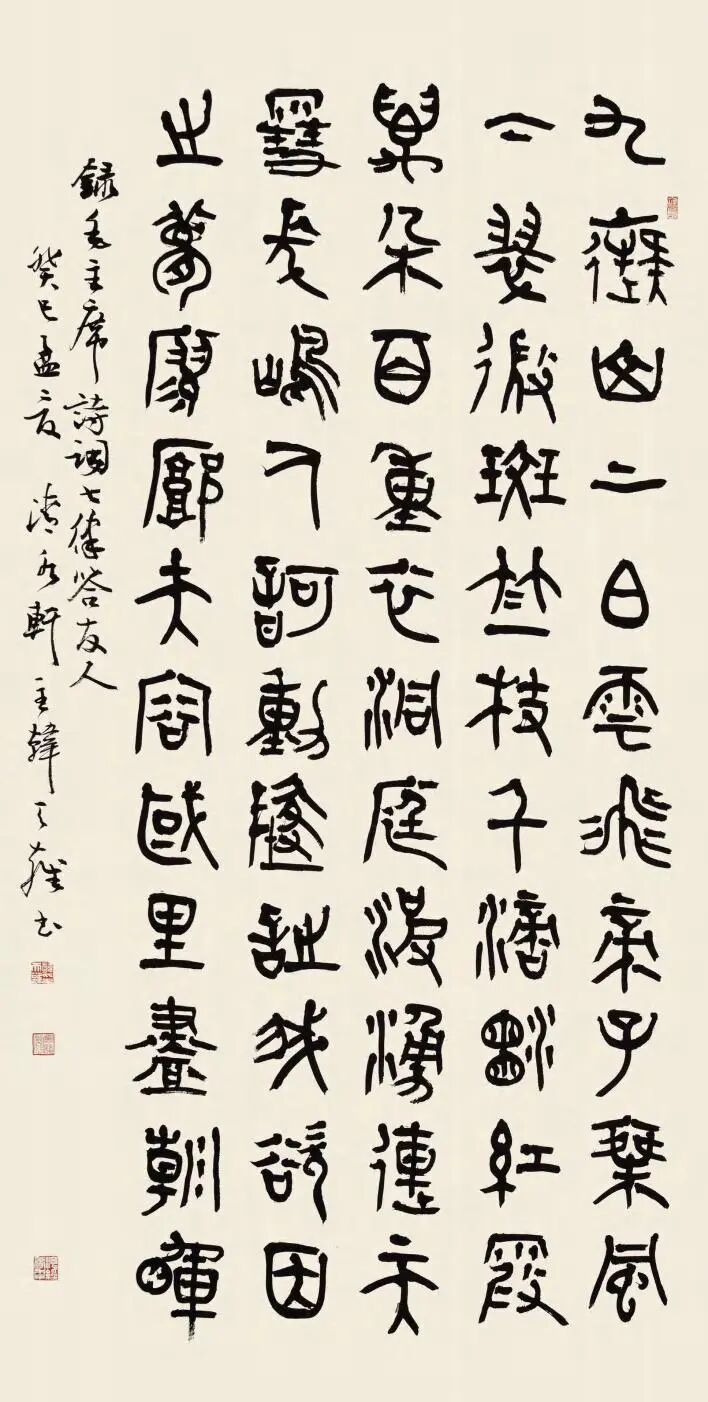 九嶷山上白雲飛帝子乘風
下翠微斑竹一枝千滴淚紅霞
萬朵百重衣洞庭波湧連天
雪長嶋人訶動地詩我欲因
之夢寥廓夫容國里盡朝暉
錄毛主席詩詞七律答友人
癸巳孟夏 軒主韓天雍書